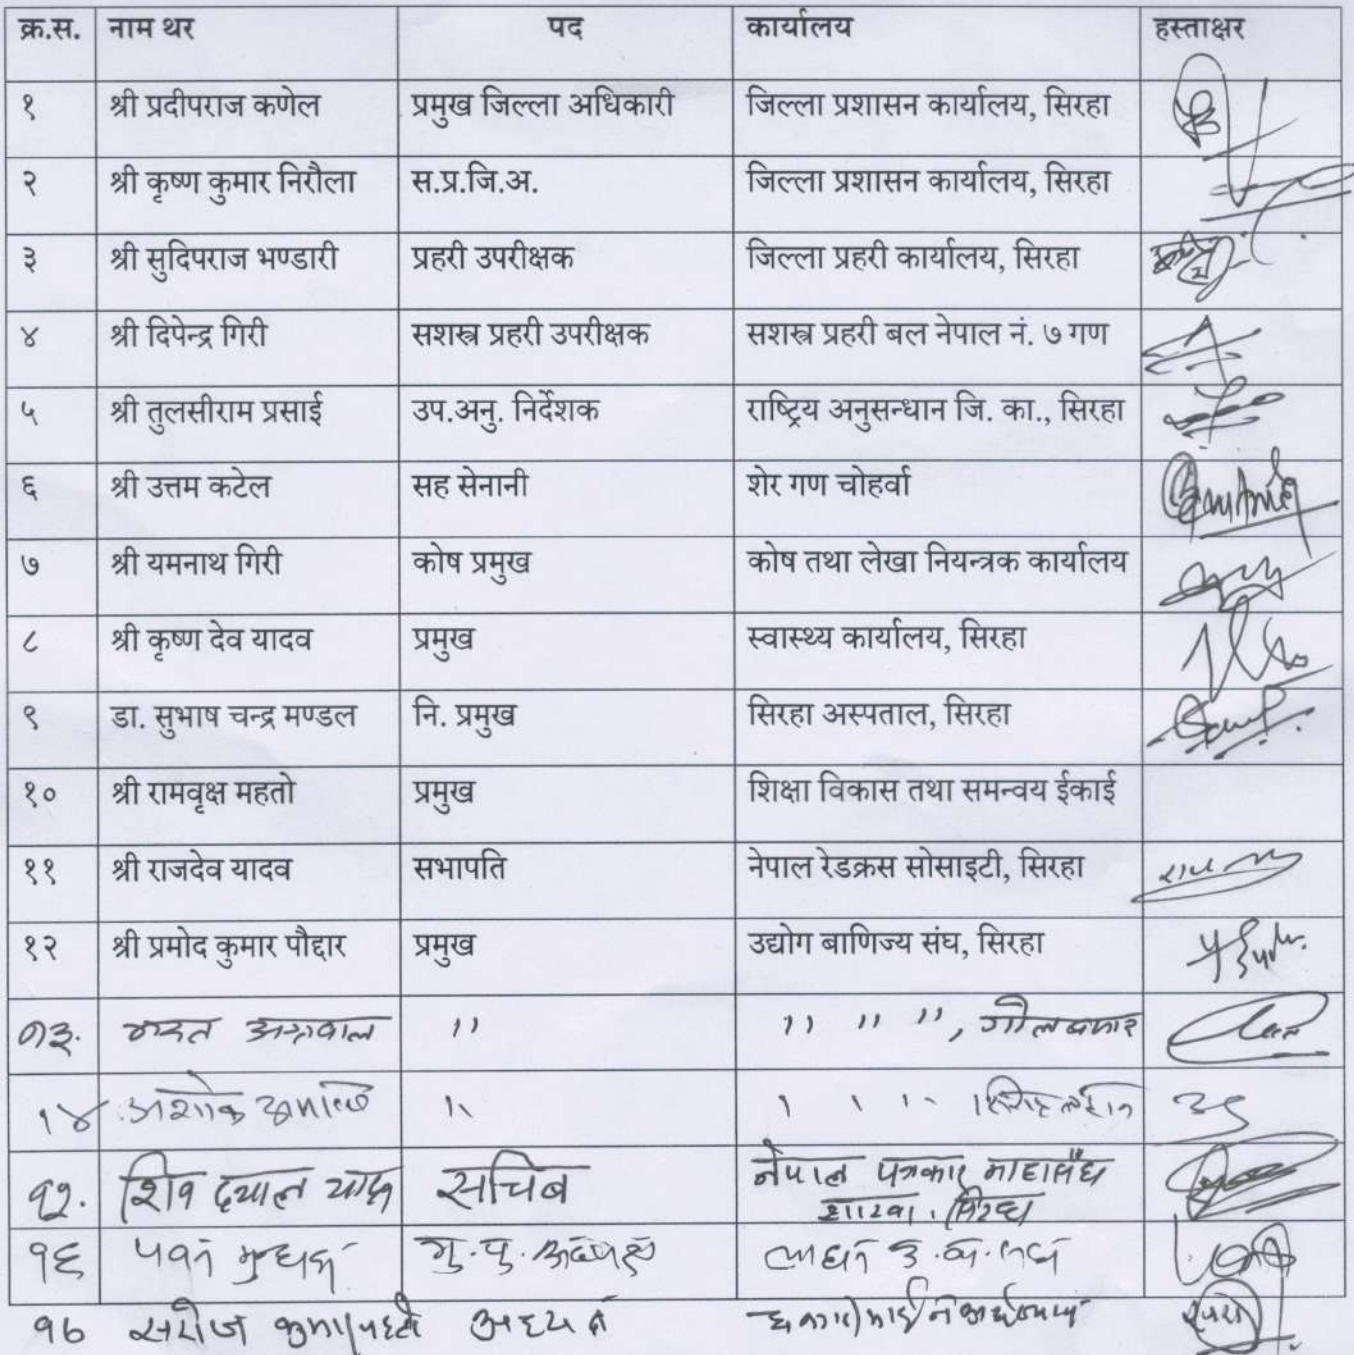 क्र.स. नाम थर पद कार्यालय हस्ताक्षर
१ श्री प्रदीपराज कणेल प्रमुख जिल्ला अधिकारी जिल्ला प्रशासन कार्यालय, सिरहा
२ श्री कृष्ण कुमार निरौला स.प्र.जि.अ. जिल्ला प्रशासन कार्यालय, सिरहा
३ श्री सुदिपराज भण्डारी प्रहरी उपरीक्षक जिल्ला प्रहरी कार्यालय, सिरहा
४ श्री दिपेन्द्र गिरी सशस्त्र प्रहरी उपरीक्षक सशस्त्र प्रहरी बल नेपाल नं. ७ गण
५ श्री तुलसीराम प्रसाई उप.अनु. निर्देशक राष्ट्रिय अनुसन्धान जि. का., सिरहा
६ श्री उत्तम कटेल सह सेनानी शेर गण चोहर्वा
७ श्री यमनाथ गिरी कोष प्रमुख कोष तथा लेखा नियन्त्रक कार्यालय
८ श्री कृष्ण देव यादव प्रमुख स्वास्थ्य कार्यालय, सिरहा
९ डा. सुभाष चन्द्र मण्डल नि. प्रमुख सिरहा अस्पताल, सिरहा
१० श्री रामवृक्ष महतो प्रमुख शिक्षा विकास तथा समन्वय ईकाई
११ श्री राजदेव यादव सभापति नेपाल रेडक्रस सोसाइटी, सिरहा
१२ श्री प्रमोद कुमार पौद्दार प्रमुख उद्योग बाणिज्य संघ, सिरहा
१३. अग्रवाल " " " ",
१४. अशोक "
१५. शिव दयाल यादव सचिब नेपाल पत्रकार माहासंघ
शाखा, सिरहा
१६ पवन
१७ सरोज